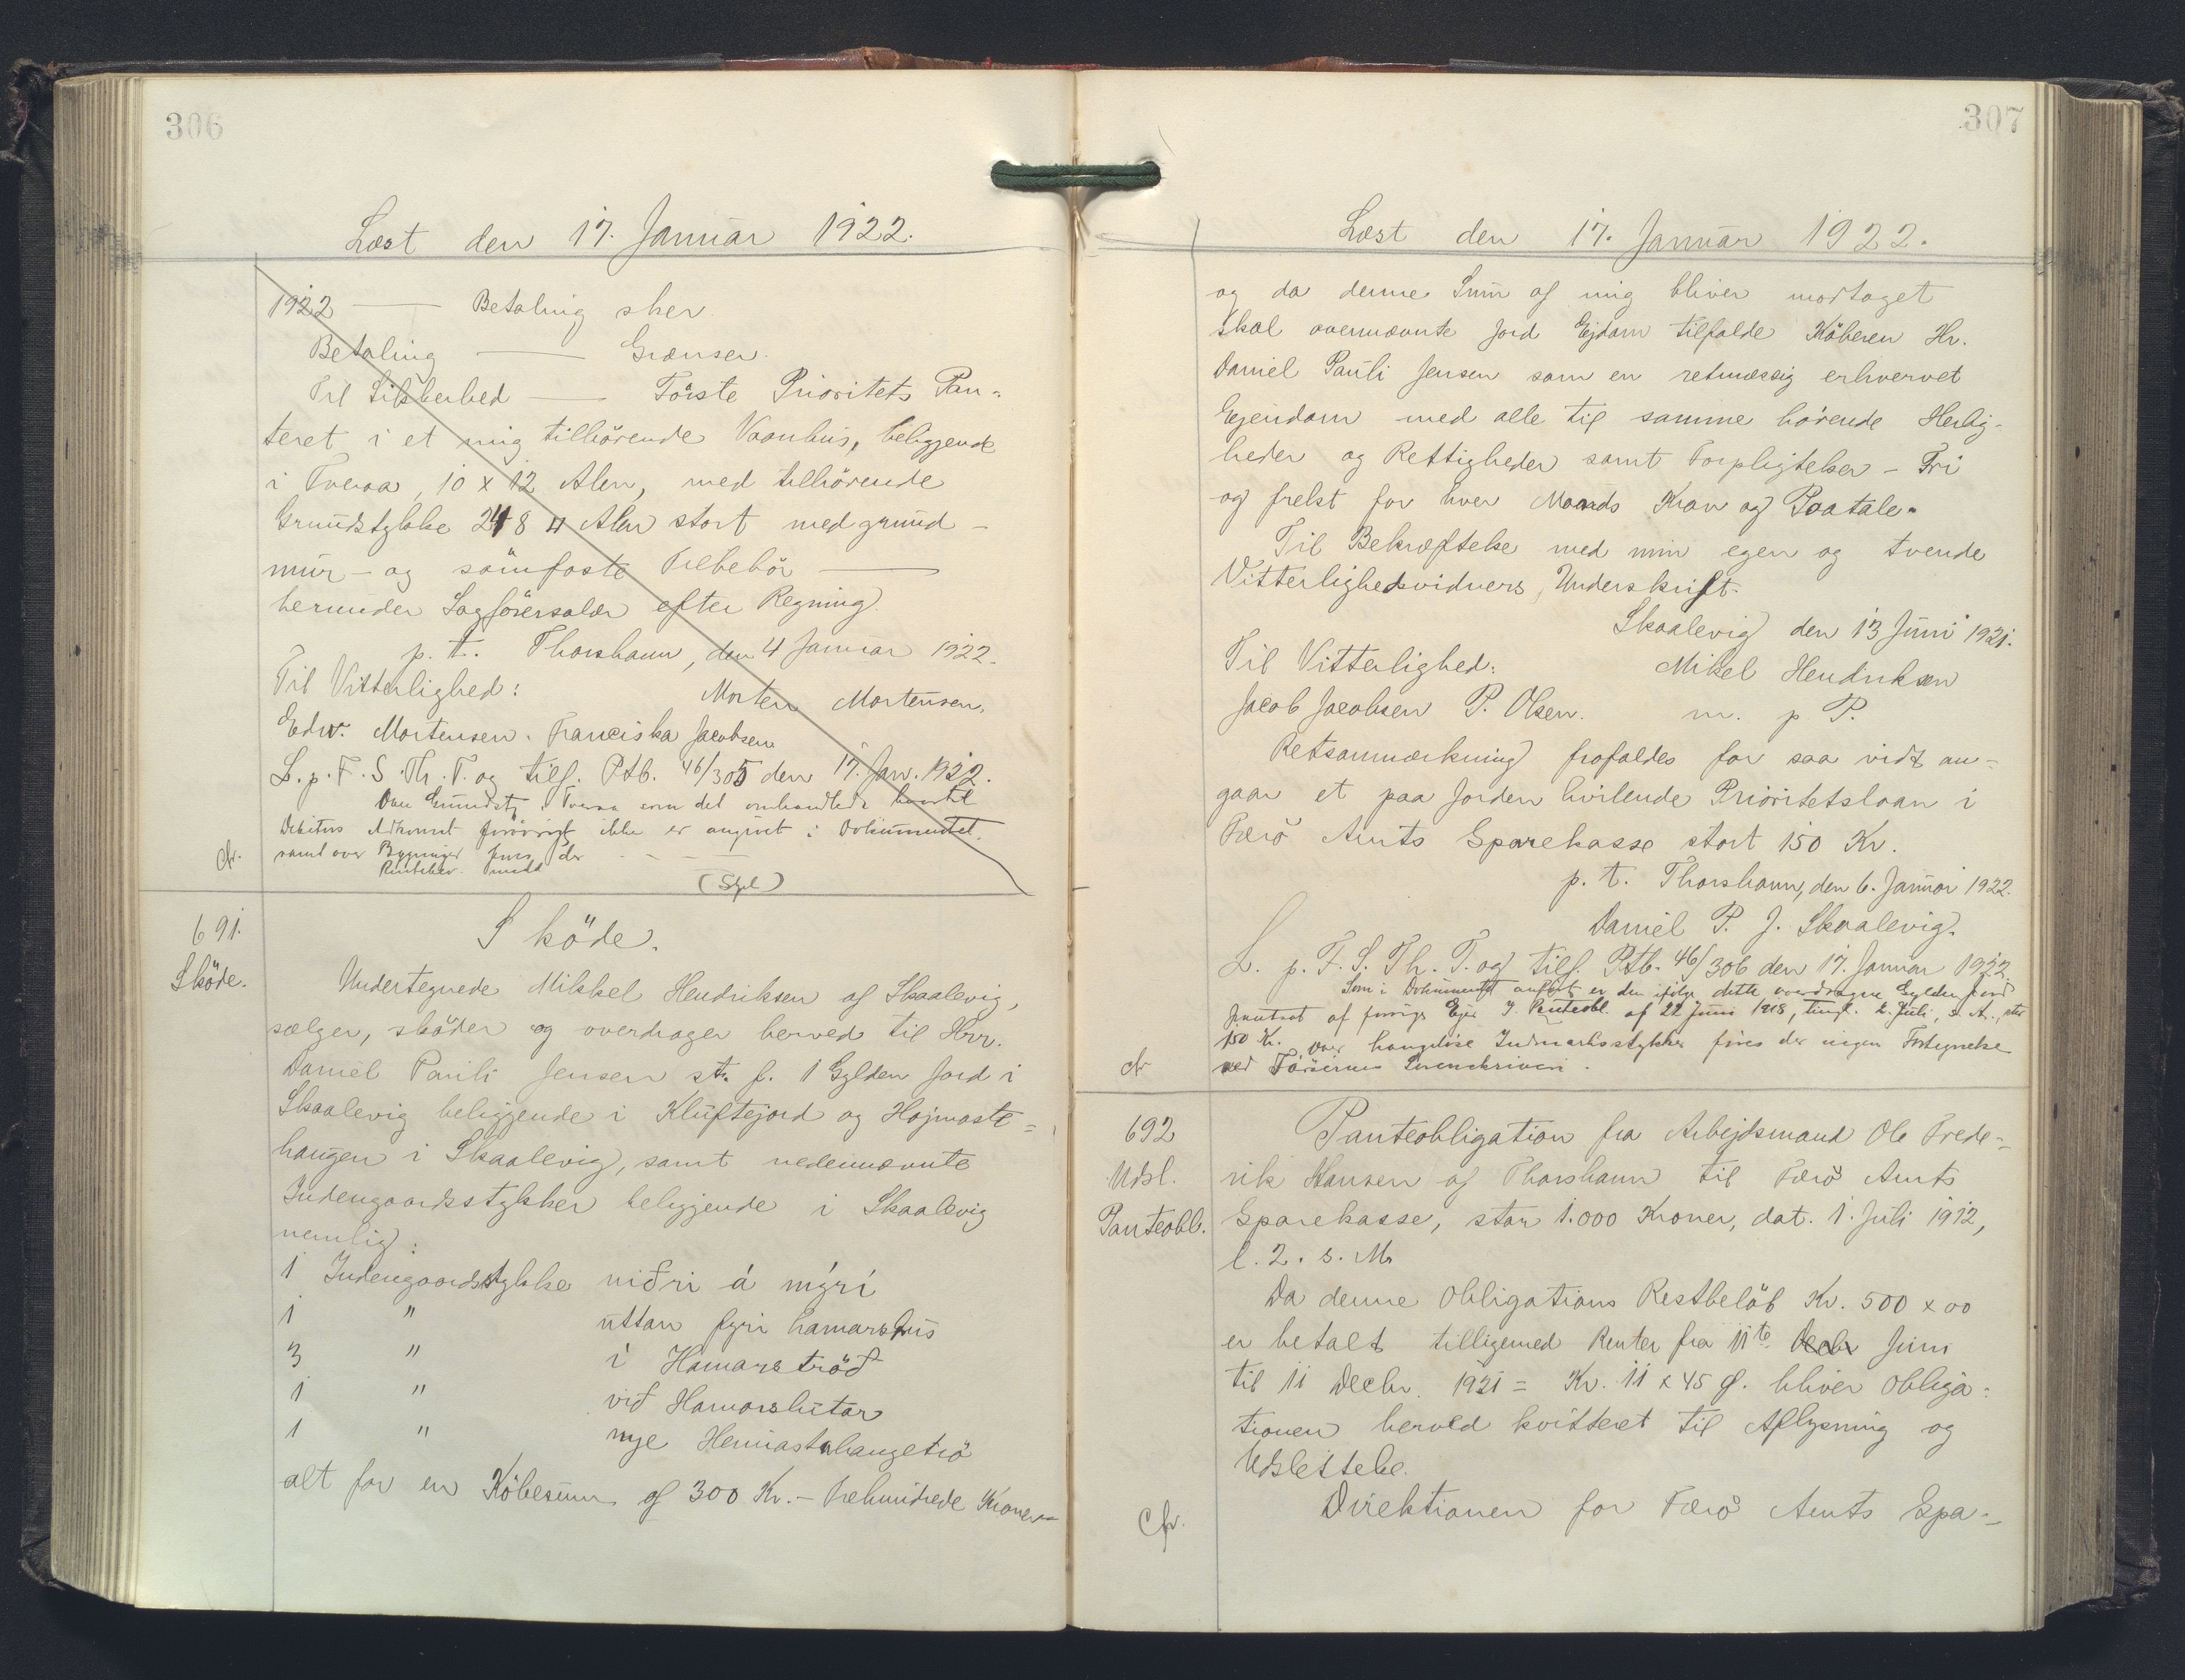 306
Læst den 17. Januar 1922.
1922 — Betaling sker.
Betaling — Grænser.
Til Sikkerhed — Første Prioritets Pan-
teret i et mig tilhörende Vaanhus, beliggende
i Tveraa, 10 x 12 Alen, med tilhörende
Grundstykke 248 □ Alen stort med grund-
mur- og sömfaste Tilbehör —
herunder Sagförersalær efter Regning.
p. t. Thorshavn, den 4 Januar 1922.
Til Vitterlighed: Morten Mortensen.
Edw. Mortensen. Franciska Jacobsen.
L. p. F. S. Th. T. og tilf. Ptb. 46/305 den 17. Jan. 1922.
Den Grundstk. i Tveraa som det omhandlede
Debitors Adkomst forövrigt ikke er angivet i Dokumentet.
samt over Bygninger föres der - - -
cfr.
691.
Sköde.
Sköde.
Undertegnede Mikkel Hendriksen af Skaalevig,
sælger, sköder og overdrager herved til Hrr.
Daniel Pauli Jensen st. f. 1 Gylden Jord i
Skaalevig beliggende i Kluftejord og Hojmaste=
haugen i Skaalevig, samt nedennævnte
Indengaardsstykker beliggende i Skaalevig
nemlig:
1 Indengaardsstykke niðri á mýri
1 " uttan fyri hamarshus
3 " i Hamars tröð
1 " við Hamarslutar
1 " nye Hemiastahaugetrö
alt for en Köbesum af 300 Kr. - trehundrede Kroner -
307
Læst den 17. Januar 1922.
og da denne Sum af mig bliver modtaget
skal ovennævnte Jord Ejdom tilfalde Köberen Hr.
Daniel Pauli Jensen som en retmæssig erhvervet
Ejendom med alle til samme hörende Herlig-
heder og Rettigheder samt Forpligtelser - Fri
og frelst for hver Mands Krav og Paatale.
Til Bekræftelse med min egen og tvende
Vitterlighedsvidners Underskrift.
Skaalevig den 13 Juni 1921.
Til Vitterlighed: Mikel Hendriksen
Jacob Jacobsen P. Olsen. m. p. P.
Retsanmærkning frafaldes for saa vidt an-
gaar et paa Jorden hvilende Prioritetslaan i
Færö Amts Sparekasse stort 150 Kr.
p. t. Thorshavn, den 6. Januar 1922.
Daniel P. J. Skaalevig.
L. p. F. S. Th. T. og tilf. Ptb. 46/306 den 17. Januar 1922.
Som i Dokumentet anfört er den ifölge dette overdragne Gylden Jord
pantsat af forrige Ejer I. Panteobl. af 22 Juni 1918, tingl. 2. Juli, s. A., stor
150 Kr. Over haugelöse Indmarksstykker föres der ingen Fortegnelse
ved Færöernes Sorenskriveri.
cfr
692
Udsl.
Panteobl.
Panteobligation fra Arbejdsmand Ole Frede-
rik Hansen af Thorshavn til Færö Amts
Sparekasse, stor 1.000 Kroner, dat. 1. Juli 1912,
l. 2. s. M.
Da denne Obligations Restbelöb Kr. 500 x 00
er betalt tilligemed Renter fra 11te Decbr Juni
til 11 Decbr. 1921 = Kr. 11 x 45 Ø. bliver Obliga-
tionen herved kvitteret til Aflysning og
Udslettelse.
Direktionen for Færö Amts Spa-
cfr.